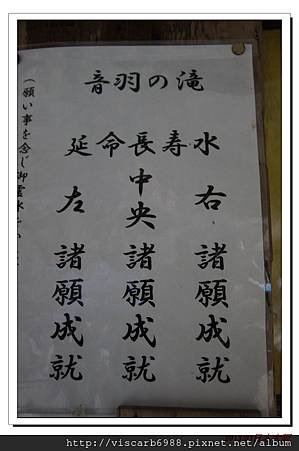 音羽の滝
延命長寿水
右 諸願成就
中央 諸願成就
左 諸願成就
(願い事を念じ御霊水
http://viscarb6988.pixnet.net/album